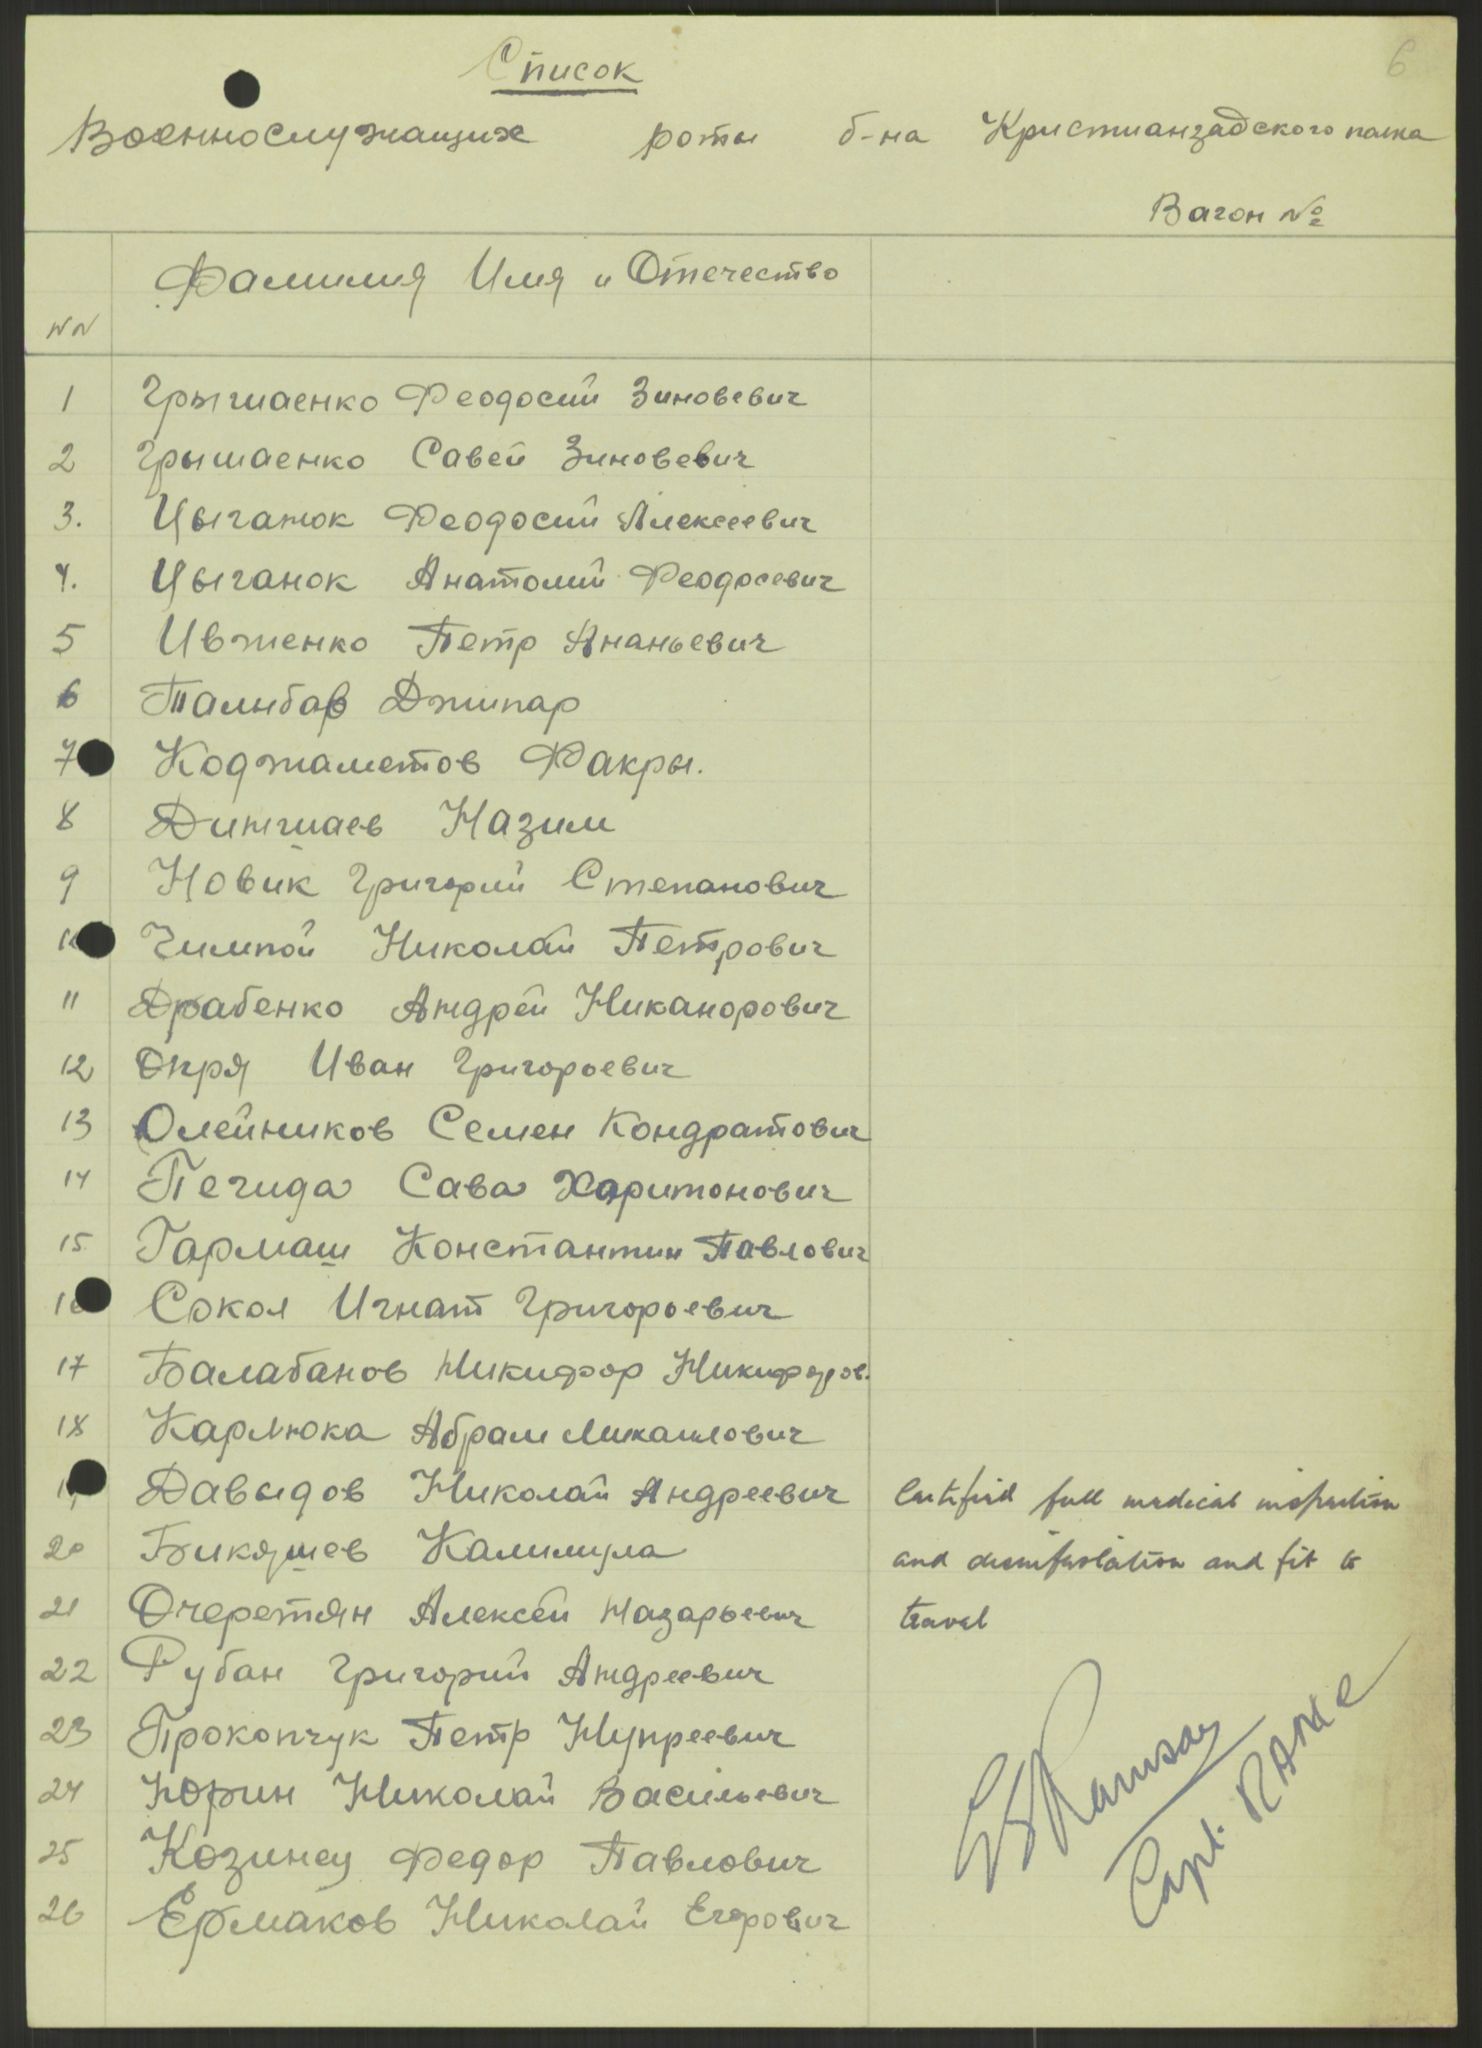 6
Список
Военнослужащих роты б-на Кристианзадского полка
Вагон №
NN Фамилия Имя и Отечество
1 Грышаенко Феодосий Зиновевич
2 Грышаенко Савей Зиновевич
3. Цыганок Феодосий Алексеевич
4. Цыганок Анатолий Феодосевич
5 Ивженко Петр Ананьевич
6 Талыбов Джипар
7 Коджаметов Факры.
8 Диншаев Назим
9 Новик Григорий Степанович
Чимпой Николай Петрович
11 Драбенко Андрей Никанорович
12 Опря Иван Григороевич
13 Олейников Семен Кондратович
14 Печида Сава Харитонович
15 Гармаш Константин Павлович
16 Сокол Игнат Григороевич
17 Балабанов Никифор Никифоров.
18 Карлюка Абрам Михаилович
Давыдов Николай Андреевич Certified full medical inspection
20 Бикяшев Калимула and disinfestation and fit to
21 Очеретян Алексей Назарьевич travel
22 Рубан Григорий Андреевич
23 Прокопчук Петр Нупреевич
24 Юрин Николай Васильевич
25 Козинец Федор Павлович
26 Ермаков Николай Егорович
Ramsay
Capt. RAMC